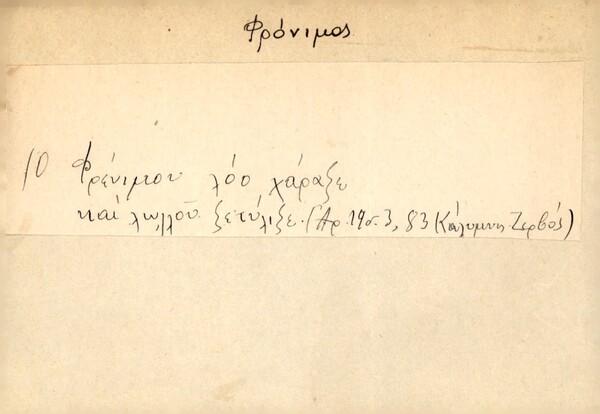 Φρόνιμος
10 Φρένιμου λόο χάραξε
και λωλλού ξετύλιξε. (Αρ. 19σ. 3, 83 Κάλυμνος Ζερβός)